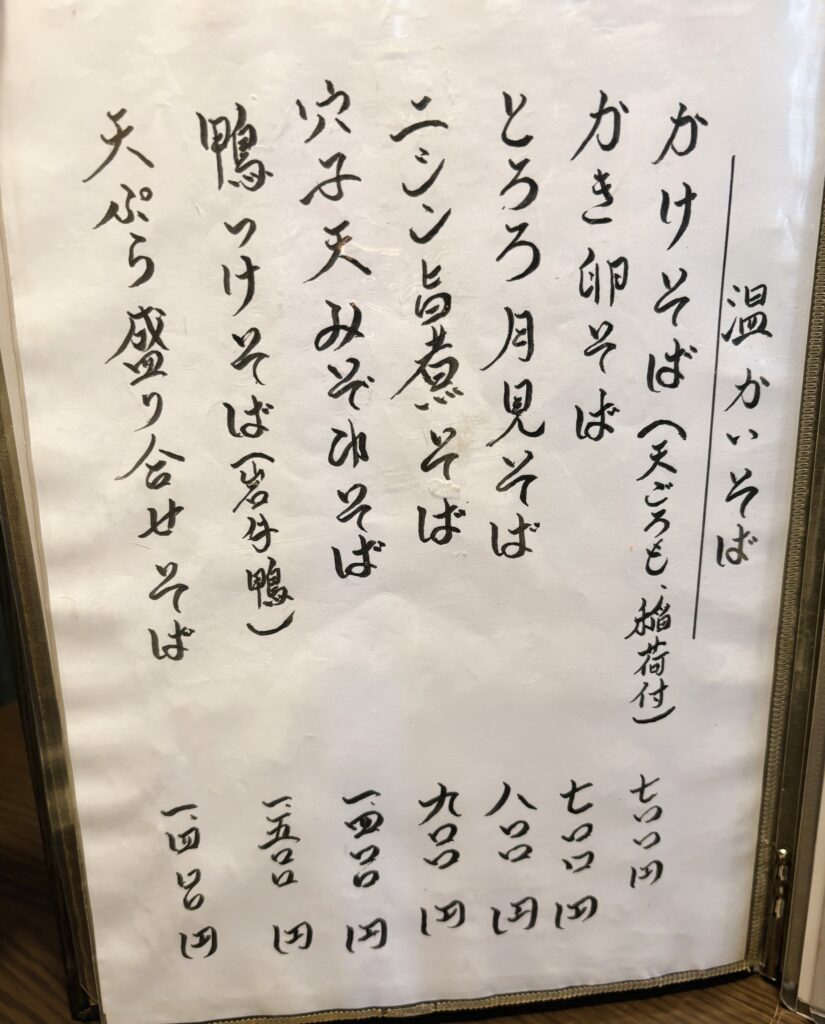 温かいそば
かけそば(天ごろも、稲荷付) 七〇〇円
かき卵そば 七〇〇円
とろろ月見そば 八〇〇円
ニシン旨煮そば 九〇〇円
穴子天みぞれそば 一、四〇〇円
鴨つけそば(岩手鴨) 一、五〇〇円
天ぷら盛り合せそば 一、四〇〇円